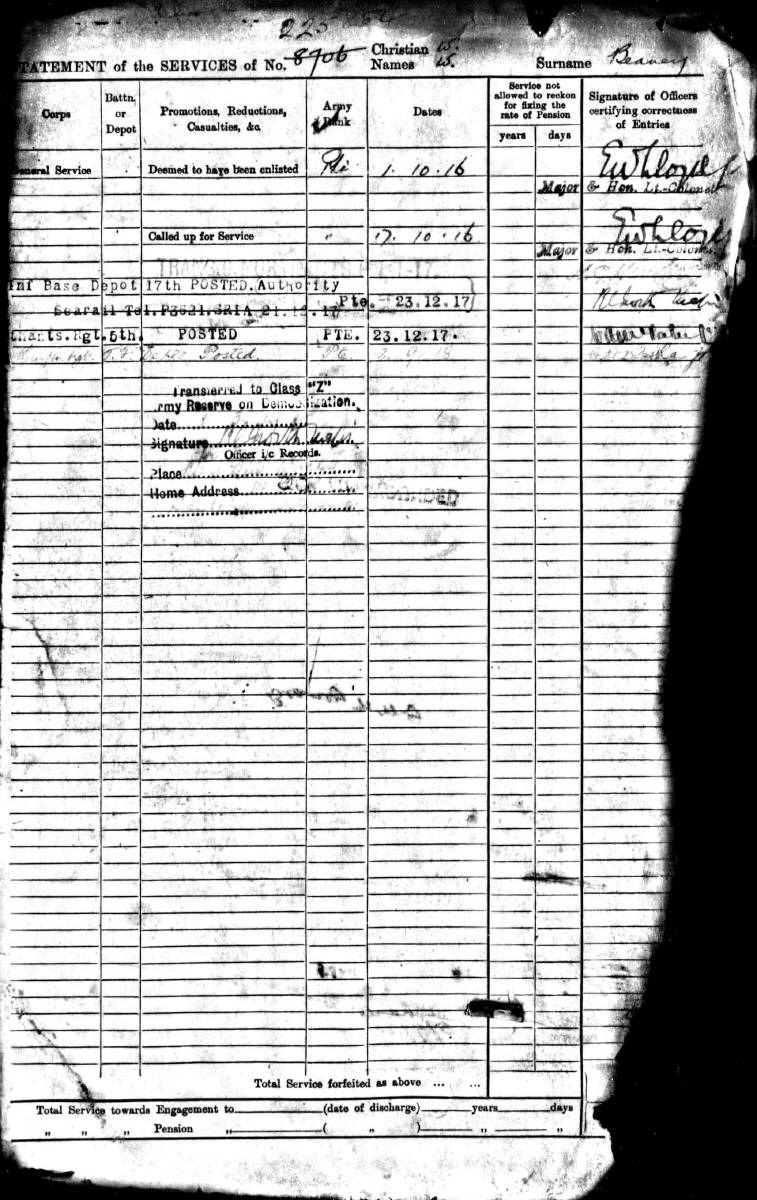 225
TATEMENT of the SERVICES of No. 8706 Christian Names Surname
Corps
Battn. or Depot
Promotions, Reductions, Casualties, &c.
Army Rank
Dates
Service not allowed to reckon for fixing the rate of Pension
years days
Signature of Officers certifying correctness of Entries
eneral Service Deemed to have been enlisted Pte 1. 10. 16 EWLloyd
Major & Hon. Lt.-Colonel
Called up for Service " 17. 10. 16 EWLloyd
Major & Hon. Lt.-Colonel
Inf Base Depot 17th POSTED. Authority
Searail Tel. P3621. SRIA 21.12.17 Pte. 23.12.17
thants.Rgt. 5th. POSTED PTE. 23.12.17.
Posted Pte 2. 9. 18
Transferred to Class "Z"
rmy Reserve on Demobilization.
Date
Signature
Officer i/c Records.
Place
Home Address
Total Service forfeited as above ... ...
Total Service towards Engagement to (date of discharge) years days
" " " Pension " ( " ) " "